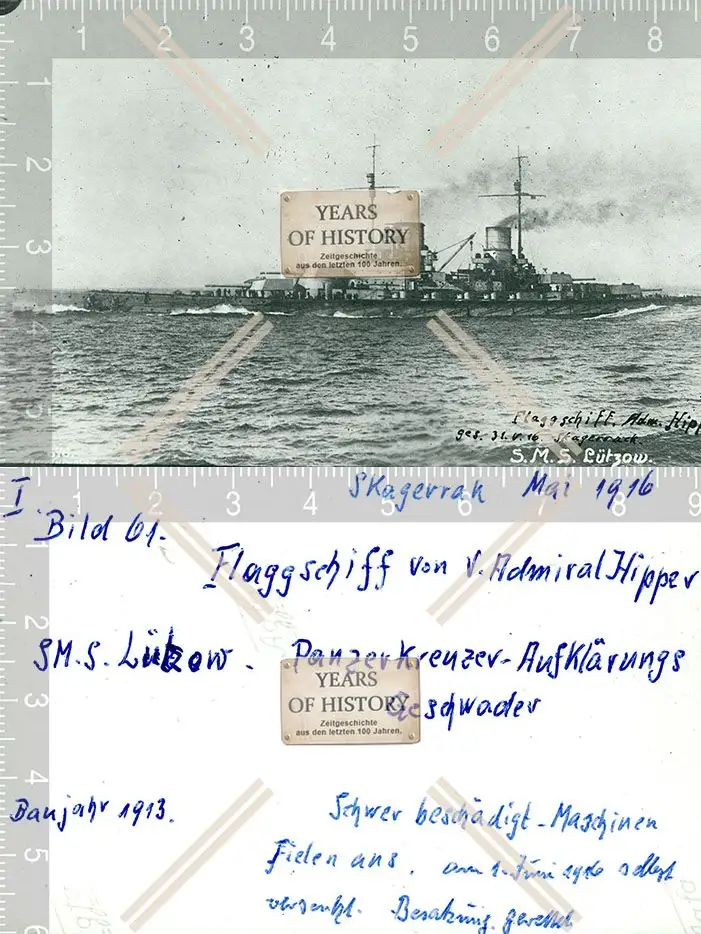 1 2 3 4 5 6 7 8
1
2
3
4
5
YEARS
OF HISTORY
Zeitgeschichte
aus den letzten 100 Jahren.
Flaggschiff. Adm. Hipp
ges. 31.V.16. Skagerrack.
S.M.S. Lützow.
1 2 3 4 5 6 7 8 9
1
2
3
4
5
6
I
Skagerrak Mai 1916
Bild 61.
Flaggschiff von V. Admiral Hipper
SM.S. Lützow. Panzerkreuzer-Aufklärungs
Geschwader
YEARS
OF HISTORY
Zeitgeschichte
aus den letzten 100 Jahren.
Baujahr 1913.
Schwer beschädigt - Maschinen
fielen aus. am 1. Juni 1916 selbst
versenkt. Besatzung gerettet